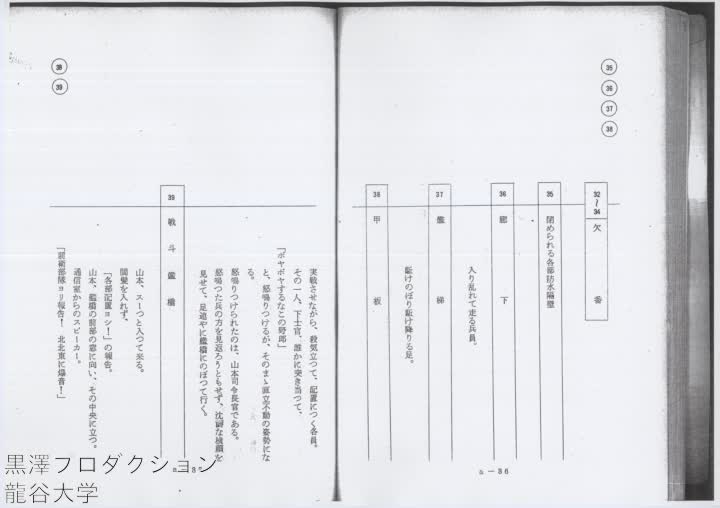 35
36
37
38
32〜34 欠番
35 閉められる各部防水隔壁
36 廊下
入り乱れて走る兵員。
37 艦梯
駈けのぼり駈け降りる足。
38 甲板
a—36
38
39
実戦させながら、殺気立つて、配置につく各員。
その一人、下士官、誰かに突き当つて、
「ボヤボヤするなこの野郎」
と、怒鳴りつけるが、そのまゝ直立不動の姿勢にな
る。
怒鳴りつけられたのは、山本司令長官である。
怒鳴つた兵の方を見返ろうともせず、沈鬱な横顔を
見せて、足速やに艦橋にのぼつて行く。
39 戦斗艦橋
山本、スーつと入つて来る。
間髪を入れず、
「各部配置ヨシ！」の報告。
山本、艦橋の前部の窓に向い、その中央に立つ。
通信室からのスピーカー。
「前衛部隊ヨリ報告！　北北東に爆音！」
黒澤プロダクション
龍谷大学